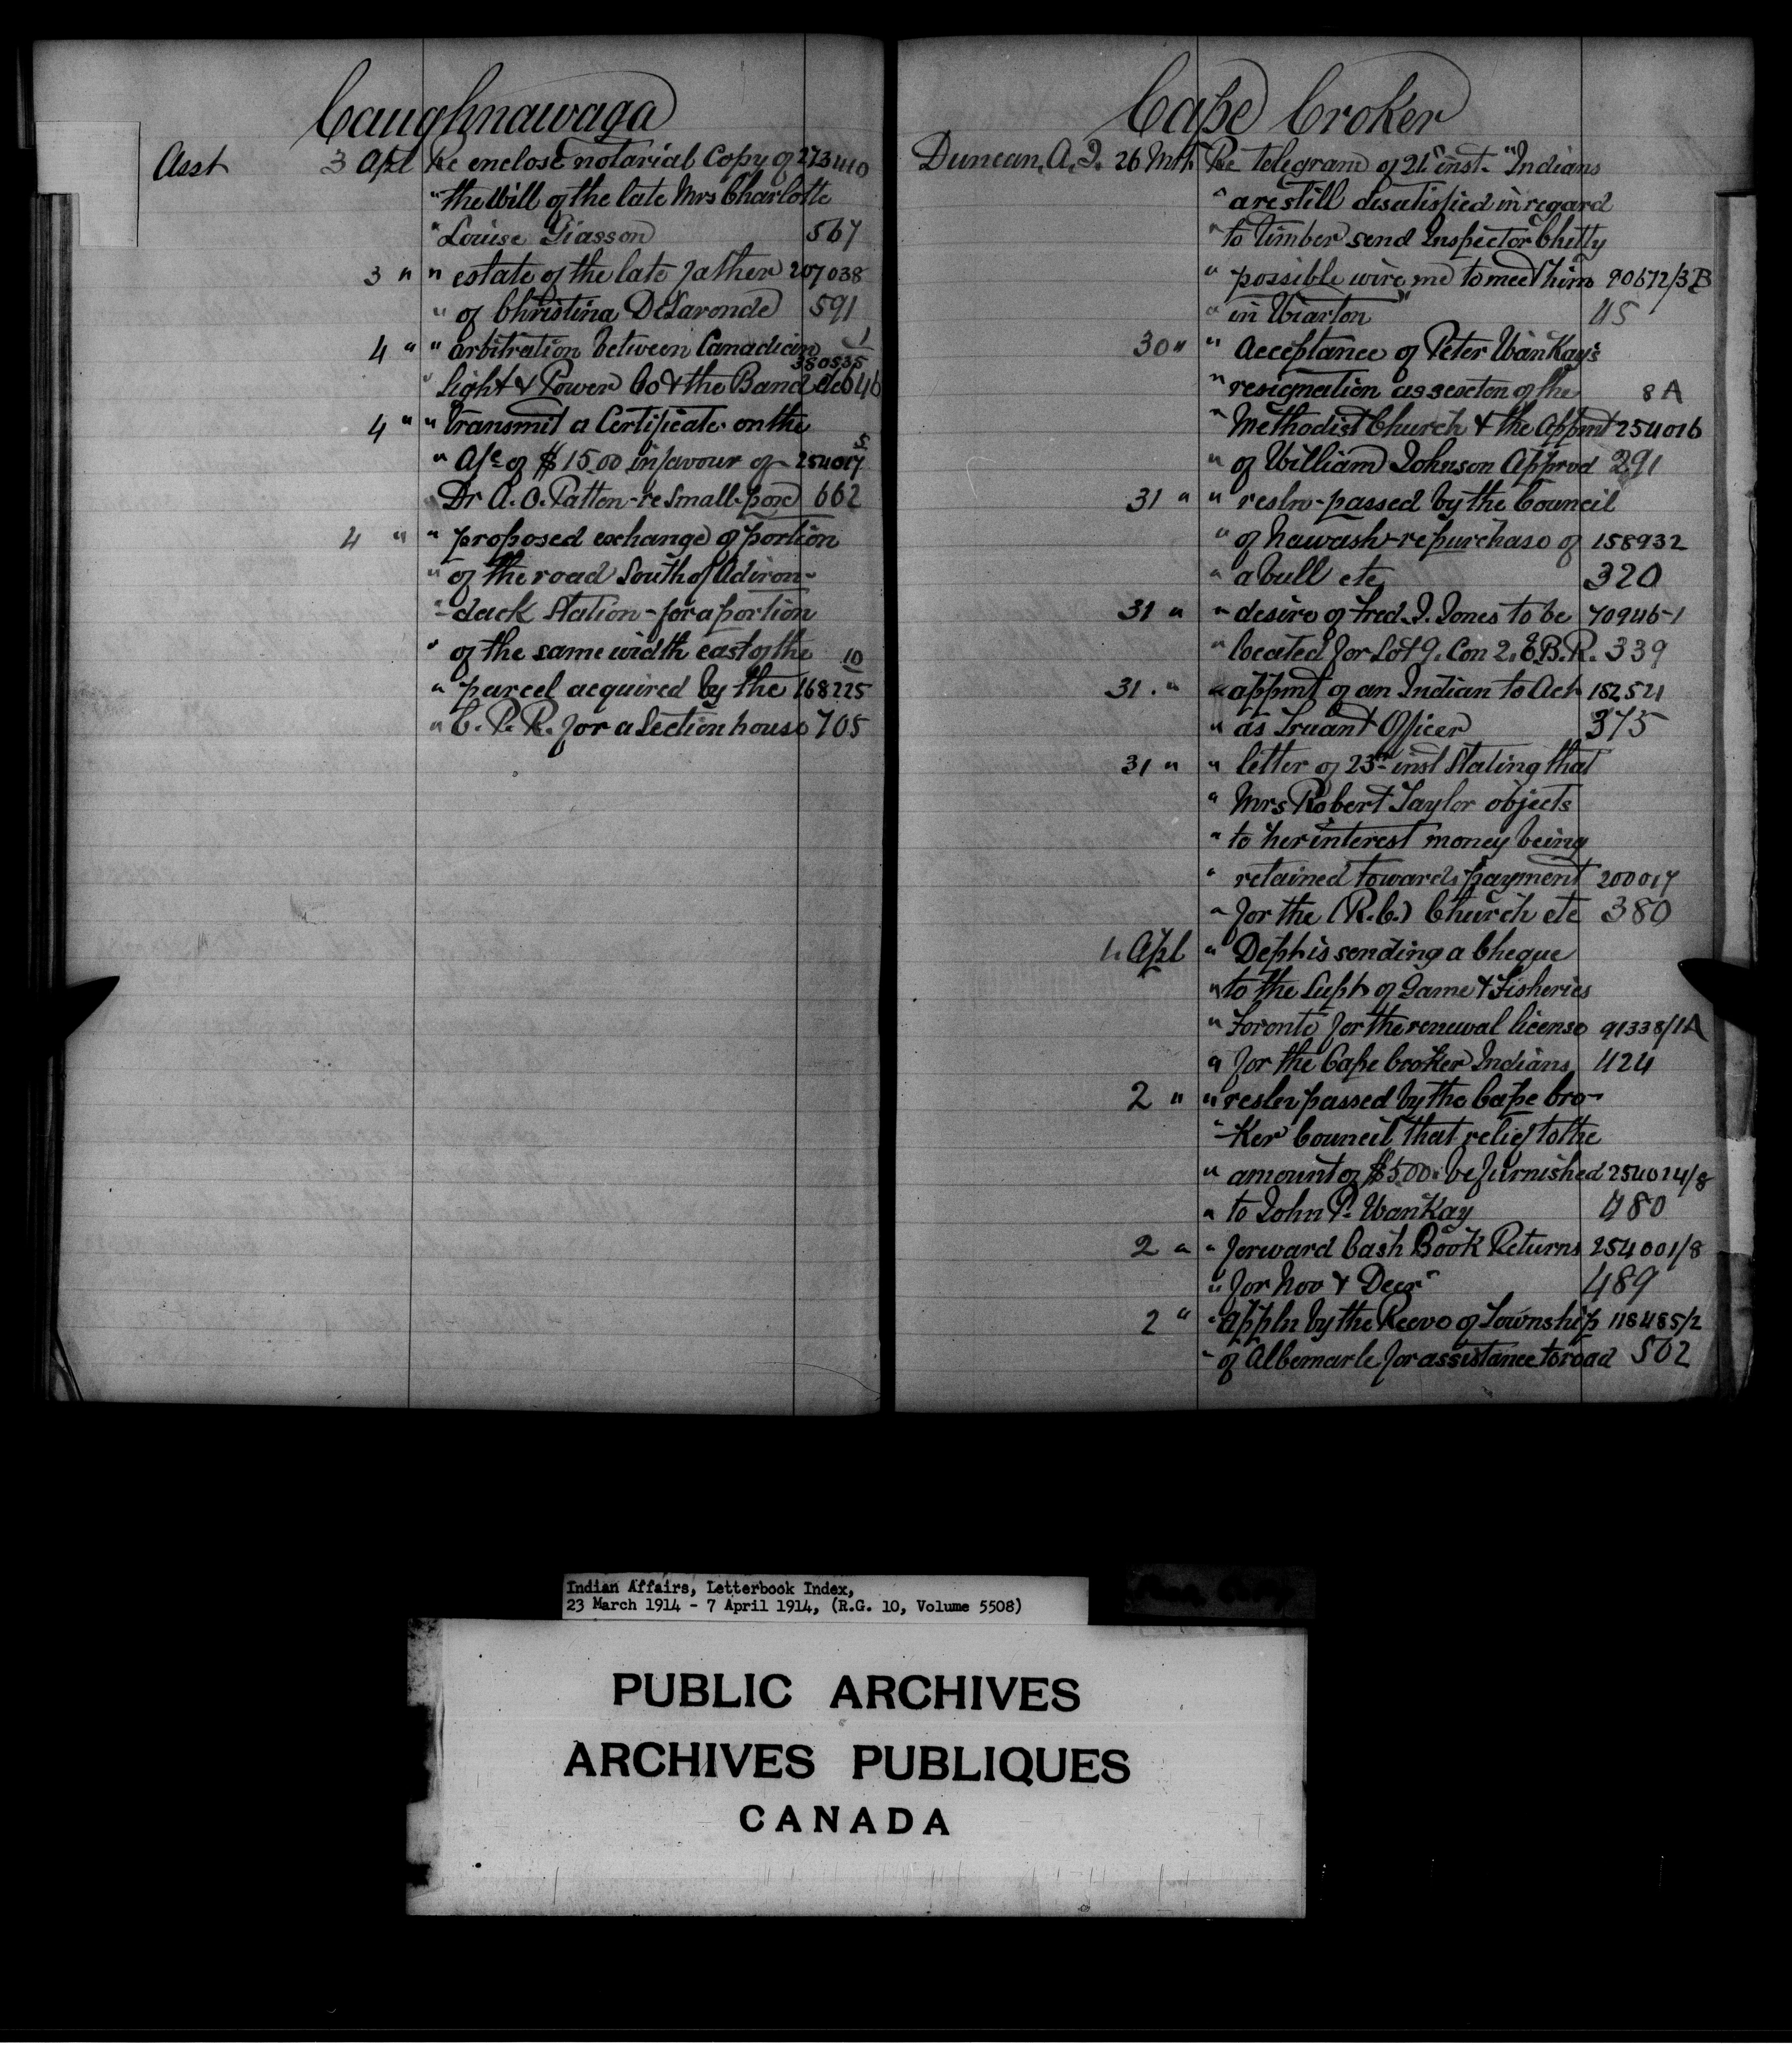 Caughnawaga
Asst 3 Apl Re enclose notarial Copy of 273440
" the Will of the late Mrs Charlotte
" Louise Giasson 567
3 " " estate of the late father 207038
" of Christina DeLaronde 591
4 " " arbitration between Canadian 1
380535
" Light & Power Co & the Band etc 646
4 " " Transmit a Certificate on the
5
" A/c of $15.00 in favour of - 254017
Dr A. O. Patton - re Small-pox 662
4 " " proposed exchange of portion
" of the road South of Adiron-
"-dack Station - for a portion
" of the same width east of the 10
" parcel acquired by the 168225
" C. P. R. for a Section house 705
Cape Croker
Duncan, A. J. 26 Mch Re telegram of 21st inst. "Indians
" are still disatisfied in regard
" to timber send Inspector Chitty
" possible wire me to meet him 90672/3B
" in Wiarton" 45
30 " " Acceptance of Peter WanKay's
" resignation as sexton of the 8A
" Methodist Church & the Appmt 254016
" of William Johnson Approd 291
31 " " resln - passed by the Council
" of Nawash - re purchase of 158932
" a bull etc 320
31 " " desire of Fred. J. Jones to be 70946-1
" located for Lot 9. Con 2. E.B.R. 339
31. " " appmt of an Indian to Act 152521
" as Truant Officer 375
31 " " letter of 23rd inst Stating that
" Mrs Robert Taylor objects
" to her interest money being
" retained towards payment 200017
" for the (R.C.) Church etc 380
1. Apl " Dept is sending a Cheque
" to the Supt of Game & Fisheries
" Toronto for the renewal license 91338/1A
" for the Cape Croker Indians 424
2 " " resln passed by the Cape Cro-
"-ker Council that relief to the
" amount of $5.00 be furnished 254024/8
" to John P. WanKay 480
2 " " forward Cash Book Returns 254001/8
" for Nov & Decr 489
2 " " Appln by the Reeve of Township 118485/2
" of Albemarle for assistance to road 502
Indian Affairs, Letterbook Index,
23 March 1914 - 7 April 1914, (R.G. 10, Volume 5508)
PUBLIC ARCHIVES
ARCHIVES PUBLIQUES
CANADA